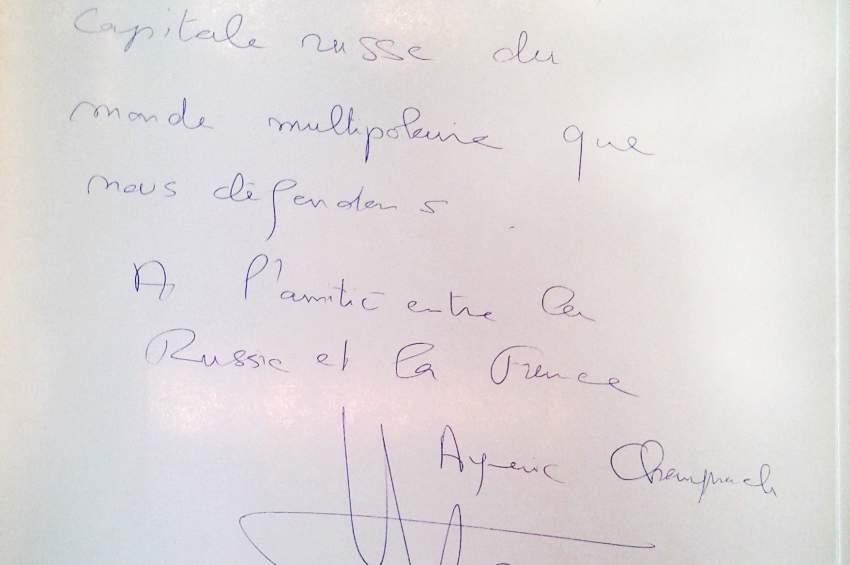 Capitale russe du
monde multipolaire que
nous défendons.
A l'amitié entre la
Russie et la France
Aymeric Chauprade